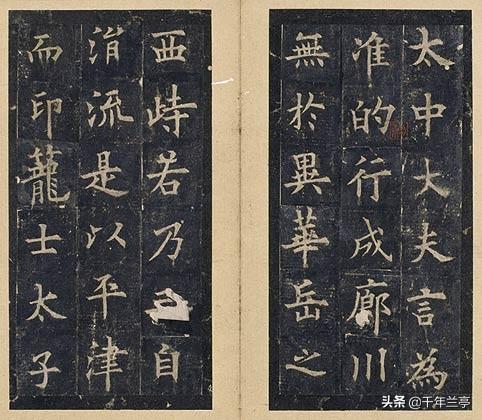 太中大夫言為
准的行成廊川
無於異華岳之
西峙若乃自
涓流是以平津
而印蘢士太子
头条 @千年兰亭